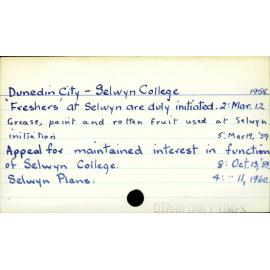 Dunedin City - Selwyn College 1958
'Freshers' at Selwyn are duly initiated. 2: Mar. 12
Grease, paint and rotten fruit used at Selwyn
initiation 5. Mar 19, '59
Appeal for maintained interest in function
of Selwyn College. 8: Oct. 13, '59
Selwyn Plans. 4: " 11, 1960
OTAGO DAILY TIMES